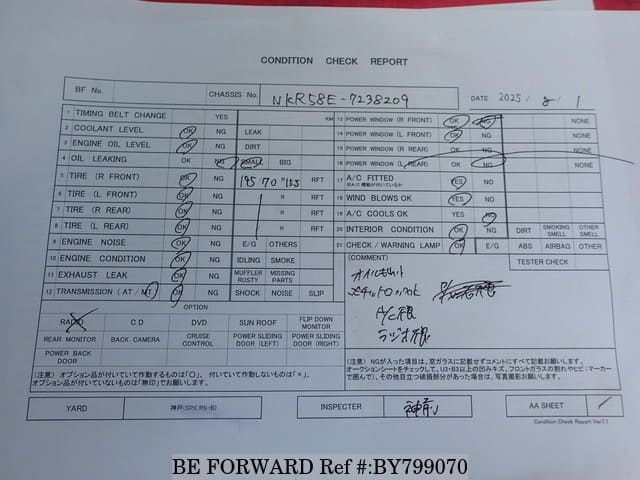 CONDITION CHECK REPORT
BF No. CHASSIS No. NKR58E-7238209 DATE 2025 / 8 / 1
1 TIMING BELT CHANGE YES KM
2 COOLANT LEVEL OK NG LEAK
3 ENGINE OIL LEVEL OK NG DIRT
4 OIL LEAKING OK NG SMALL BIG
5 TIRE (R FRONT) OK NG 195 70 R 15.5 RFT
6 TIRE (L FRONT) OK NG R RFT
7 TIRE (R REAR) OK NG R RFT
8 TIRE (L REAR) OK NG R RFT
9 ENGINE NOISE OK NG E/G OTHERS
10 ENGINE CONDITION OK NG IDLING SMOKE
11 EXHAUST LEAK OK NG MUFFLER RUSTY MISSING PARTS
12 TRANSMISSION (AT / MT) OK NG SHOCK NOISE SLIP
13 POWER WINDOW (R FRONT) OK NG NONE
14 POWER WINDOW (L FRONT) OK NG NONE
15 POWER WINDOW (R REAR) OK NG NONE
16 POWER WINDOW (L REAR) OK NG NONE
17 A/C FITTED YES NO
※A/C機能が付いているか
18 WIND BLOWS OK YES NO
19 A/C COOLS OK YES NO
20 INTERIOR CONDITION OK NG DIRT SMOKING SMELL OTHER SMELL
21 CHECK / WARNING LAMP OK E/G ABS AIRBAG OTHER
(COMMENT) TESTER CHECK
A/C 不良
ラジオ不良
OPTION
RADIO CD DVD SUN ROOF FLIP DOWN MONITOR
REAR MONITOR BACK CAMERA CRUISE CONTROL POWER SLIDING DOOR (LEFT) POWER SLIDING DOOR (RIGHT)
POWER BACK DOOR
(注意) オプション品が付いていて作動するものは「○」、付いていて作動しないものは「×」、
オプション品が付いていないものは「無印」でお願いします。
(注意) NGが入った項目は、窓ガラスに記載せずコメントにすべて記載お願いします。
オークションシートをチェックして、U3・B3以上の凹みキズ、フロントガラスの割れやヒビ(マーカー
で囲んで)、その他目立つ破損部分があった場合は、写真撮影お願いします。
YARD 神戸(SPX RS-B) INSPECTER AA SHEET
Condition Check Report Ver7.1
BE FORWARD Ref #:BY799070